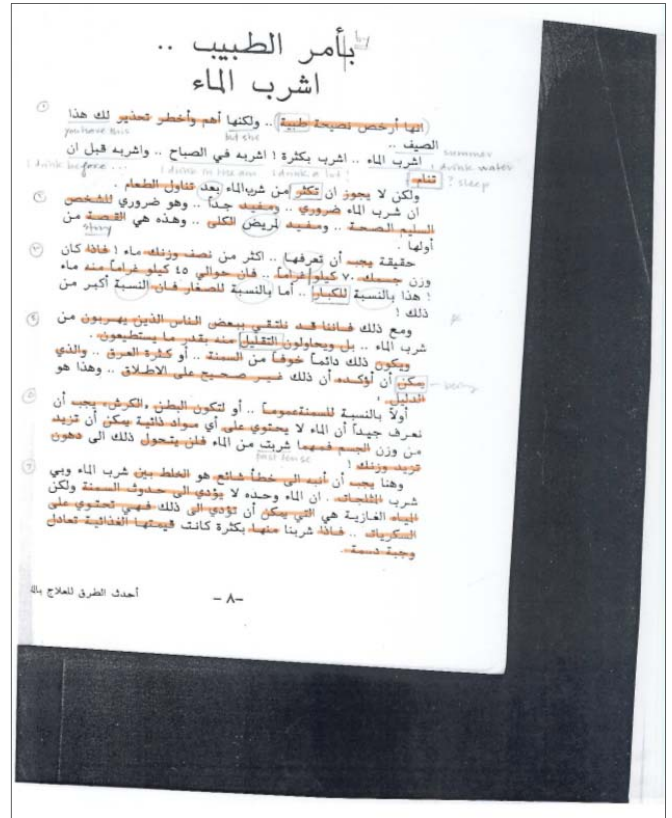 بأمر الطبيب ..
by
اشرب الماء
انها أرخص نصيحة طبية .. ولكنها أهم وأخطر تحذير لك هذا
you have this
but she
الصيف ..
summer
اشرب الماء .. اشرب بكثرة ! اشربه في الصباح .. واشربه قبل ان
I drink before ... I drink in the am I drink a lot ! drink water
تنام
? sleep
ولكن لا يجوز ان تكثر من شرب الماء بعد تناول الطعام .
ان شرب الماء ضروري .. ومفيد جداً .. وهو ضروري للشخص
السليم الصحة .. ومفيد لمريض الكلى .. وهذه هي القصة من
story
أولها .
حقيقة يجب أن تعرفها .. اكثر من نصف وزنك ماء ! فاذا كان
وزن جسمك ٧٠ كيلو غراماً .. فان حوالي ٤٥ كيلو غراماً منه ماء
! هذا بالنسبة للكبار .. أما بالنسبة للصغار فان النسبة أكبر من
ذلك !
ومع ذلك فاننا قد نلتقي ببعض الناس الذين يهربون من
شرب الماء .. بل ويحاولون التقليل منه بقدر ما يستطيعون .
ويكون ذلك دائماً خوفاً من السمنة .. أو كثرة العرق .. والذي
يمكن أن أؤكده أن ذلك غير صحيح على الاطلاق .. وهذا هو
being
الدليل !
أولاً بالنسبة للسمنة عموماً .. أو لتكون البطن «الكرش» يجب أن
نعرف جيداً أن الماء لا يحتوي على أي مواد ذائبة يمكن أن تزيد
من وزن الجسم فمهما شربت من الماء فلن يتحول ذلك الى دهون
past tense
تزيد وزنك !
وهنا يجب أن أنبه الى خطأ شائع هو الخلط بين شرب الماء وبي
شرب المثلجات . ان الماء وحده لا يؤدي الى حدوث السمنة ولكن
المياه الغازية هي التي يمكن أن تؤدي الى ذلك فهي تحتوي على
السكريات .. فاذا شربنا منها بكثرة كانت قيمتها الغذائية تعادل
وجبة دسمة .
–٨–
أحدث الطرق للعلاج بالم